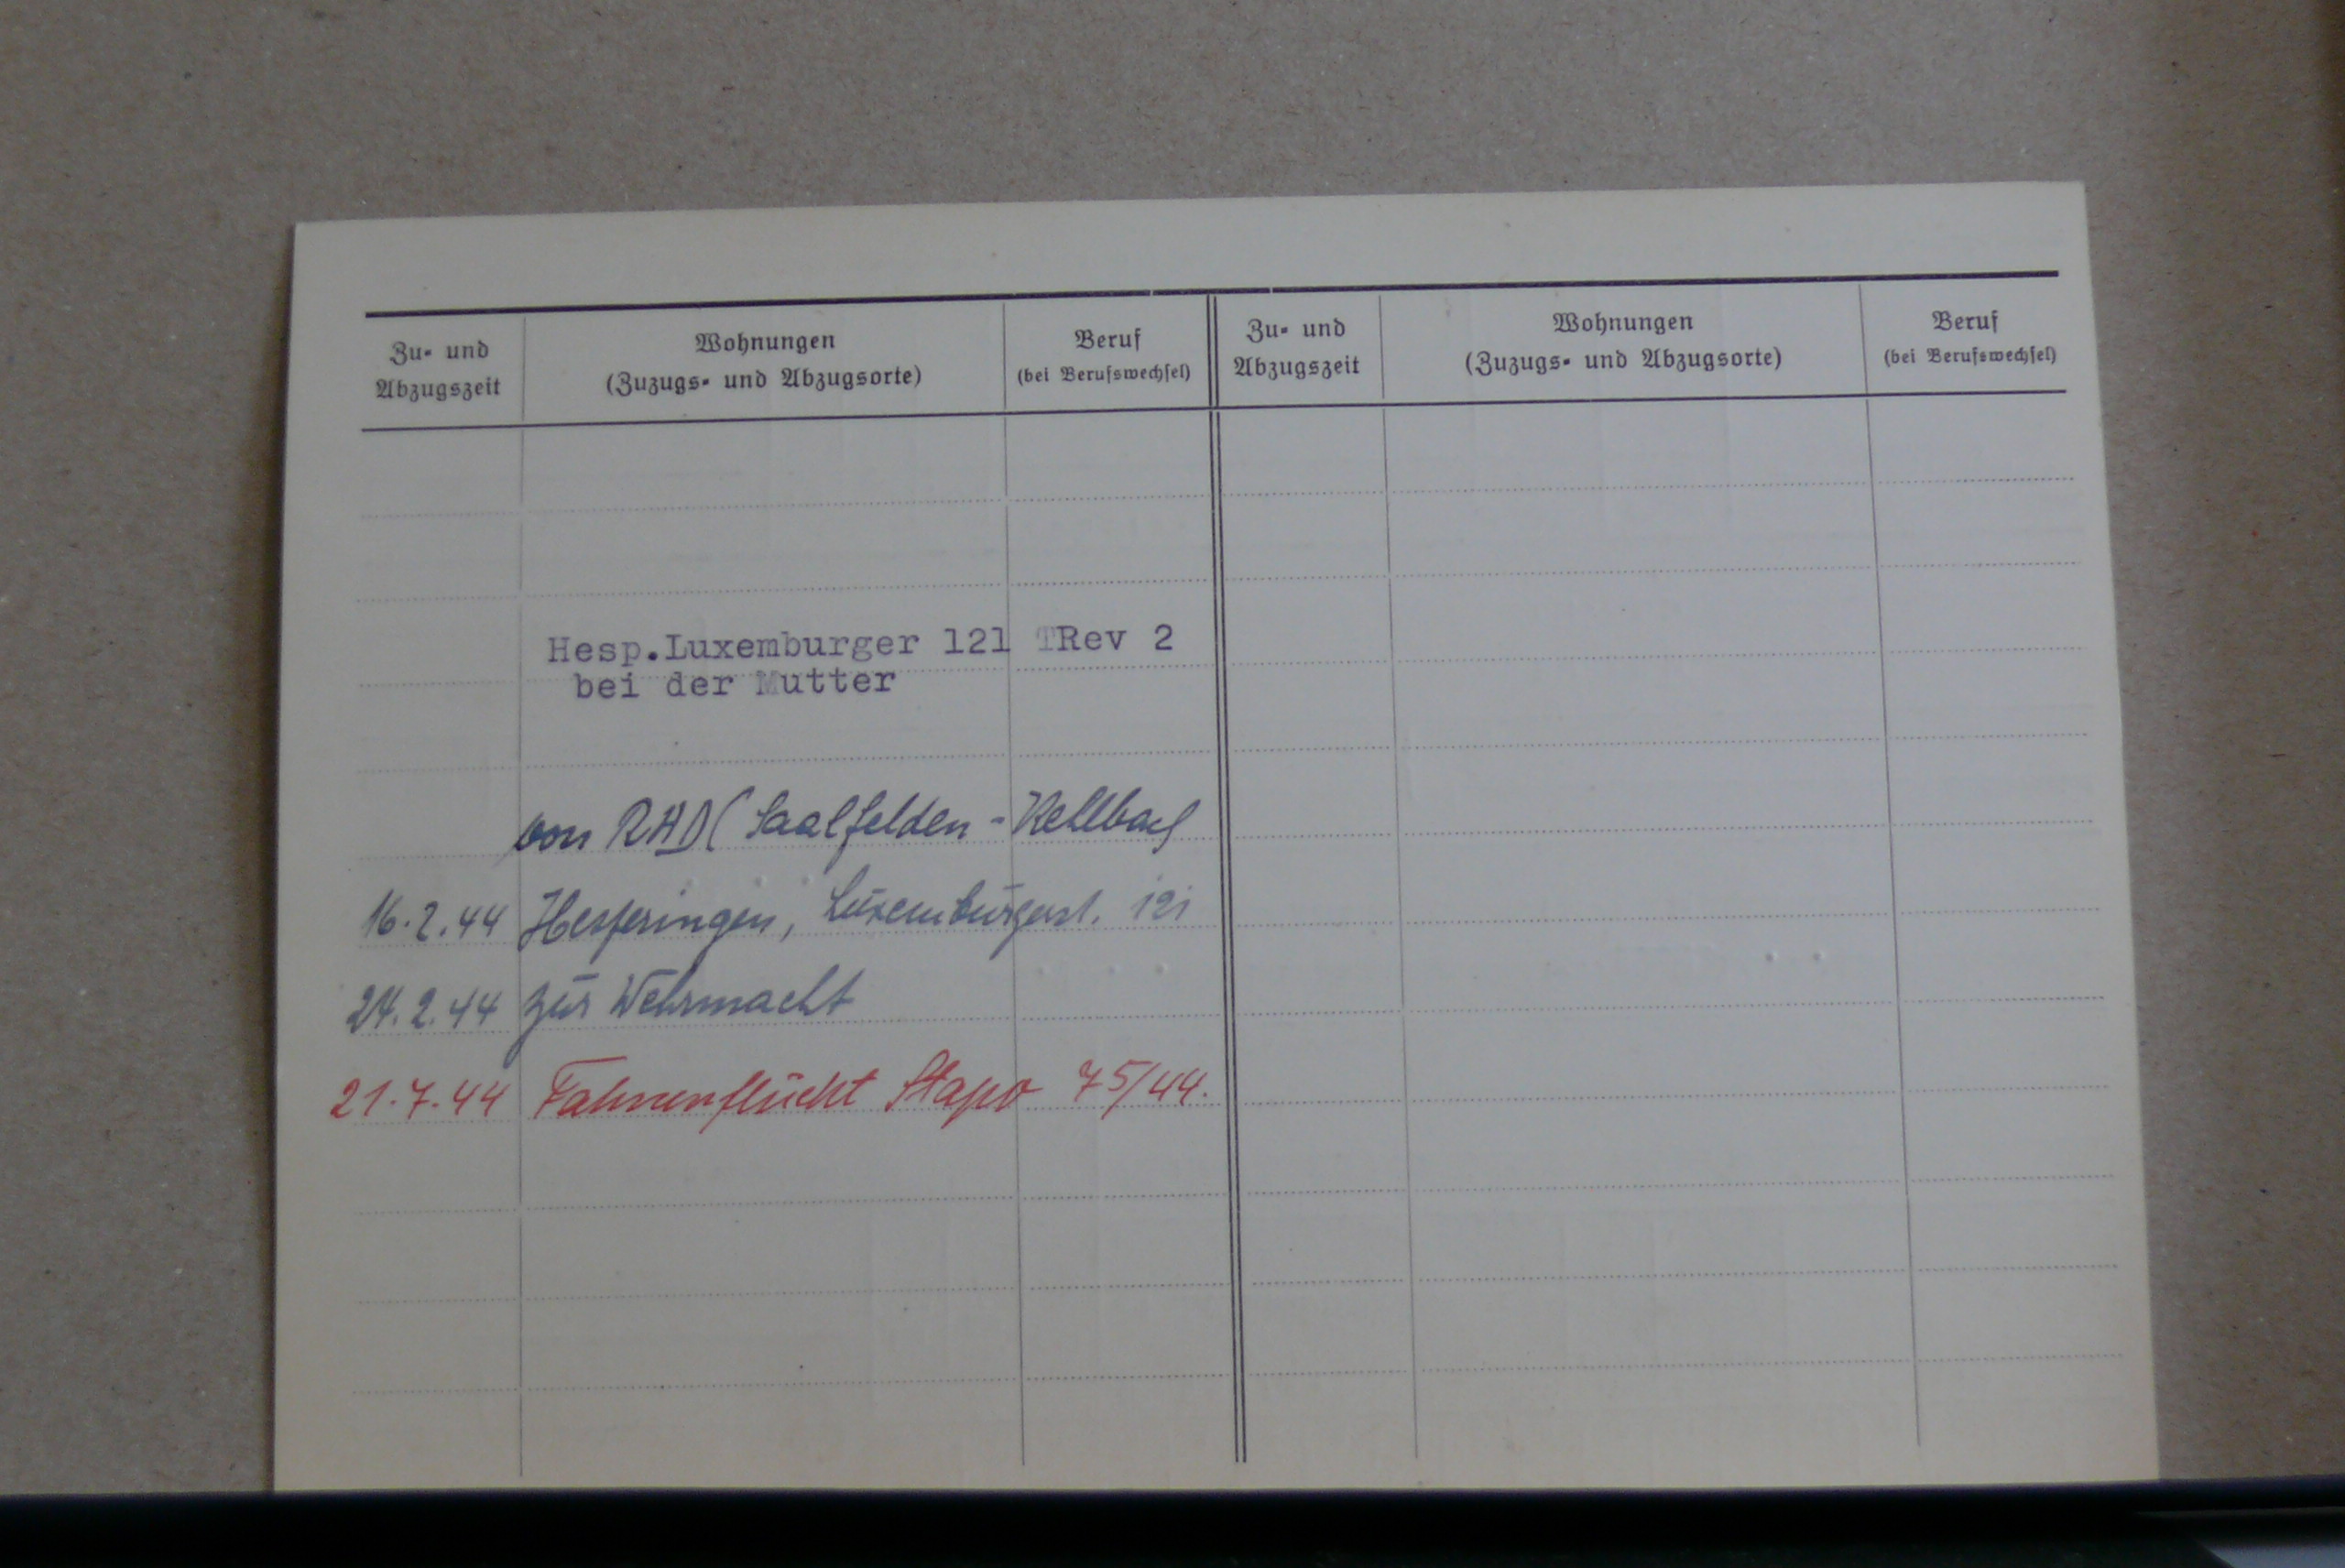 Zu- und Abzugszeit
Wohnungen
(Zuzugs- und Abzugsorte)
Beruf
(bei Berufswechsel)
Zu- und Abzugszeit
Wohnungen
(Zuzugs- und Abzugsorte)
Beruf
(bei Berufswechsel)
Hesp.Luxemburger 121 Rev 2
bei der Mutter
von RAD (Saalfelden -
16.2.44 Hesperingen, Luxemburgerst. 121
24.2.44 zur Wehrmacht
21.7.44 Fahnenflucht Stapo 75/44.